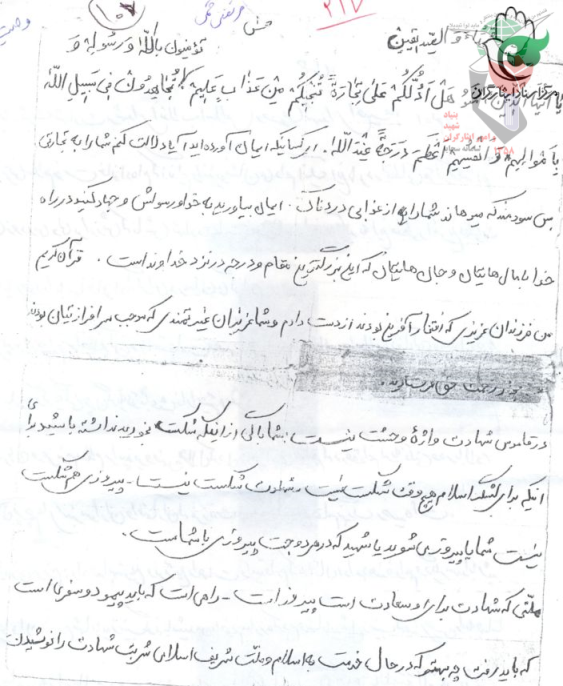 ۱۰۷
۲۱۷
مرتضی
الصدیقین
تؤمنون باللّه و رسوله و
هَلْ اَدُلُّکُم عَلی تِجارَةٍ تُنجیکُم مِن عَذابٍ اَلیم تُجاهِدونَ فی سَبیلِ اللّه
بِاَموالِهِم وَ اَنفُسِهِم اَعْظَمُ دَرَجَةً عِندَ اللّه. ای کسانیکه ایمان آورده اید آیا دلالت کنم شما را به تجارتی
بس سودمند که می رهاند شما را از عذابی دردناک. ایمان بیاورید به خدا و رسولش و جهاد کنید در راه
خدا با مال هایتان و جان هایتان که این بزرگترین مقام و درجه در نزد خداوند است. قرآن کریم
من فرزندان عزیزی که افتخار آفرین بودند از دست دادم و شما عزیزان غیرتمندی که موجب سرافرازیتان بودند
رحمت حق
در قاموس شهادت واژهٔ وحشت نیست. شما باکی از اینکه شکست خورید نداشته باشید برای
اینکه برای لشکر اسلام هیچوقت شکست نیست. شهادت شکست نیست. پیروزی هم شکست
نیست شما یا پیروز می شوید یا شهید که در هر دو جهت پیروزی با شماست.
ملتی که شهادت برای او سعادت است پیروز است. راهی است که باید پیمود و سفری است
که باید رفت چه بهتر که در حال خدمت به اسلام و ملت شریف اسلامی شربت شهادت را نوشیدن
بنیاد
شهید
و امور ایثارگران
۱۳۵۸